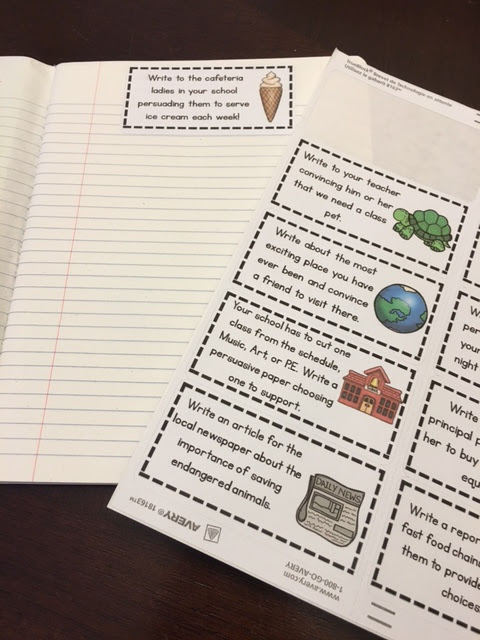 Write to the cafeteria
ladies in your school
persuading them to serve
ice cream each week!
TrueBlock® Brevet de Technologie en attente
Utilisez le gabarit 8163™
Write to your teacher
convincing him or her
that we need a class
pet.
Write about the most
exciting place you have
ever been and convince
a friend to visit there.
Your school has to cut one
class from the schedule,
Music, Art, or P.E. Write a
persuasive paper choosing
one to support.
Write an article for the
local newspaper about the
importance of saving
endangered animals.
DAILY NEWS
AVERY® 18163™
www.avery.com
1-800-GO-AVERY
W
per
your
night
Write
principal p
her to buy
equ
Write a repor
fast food chain
them to provide
choices